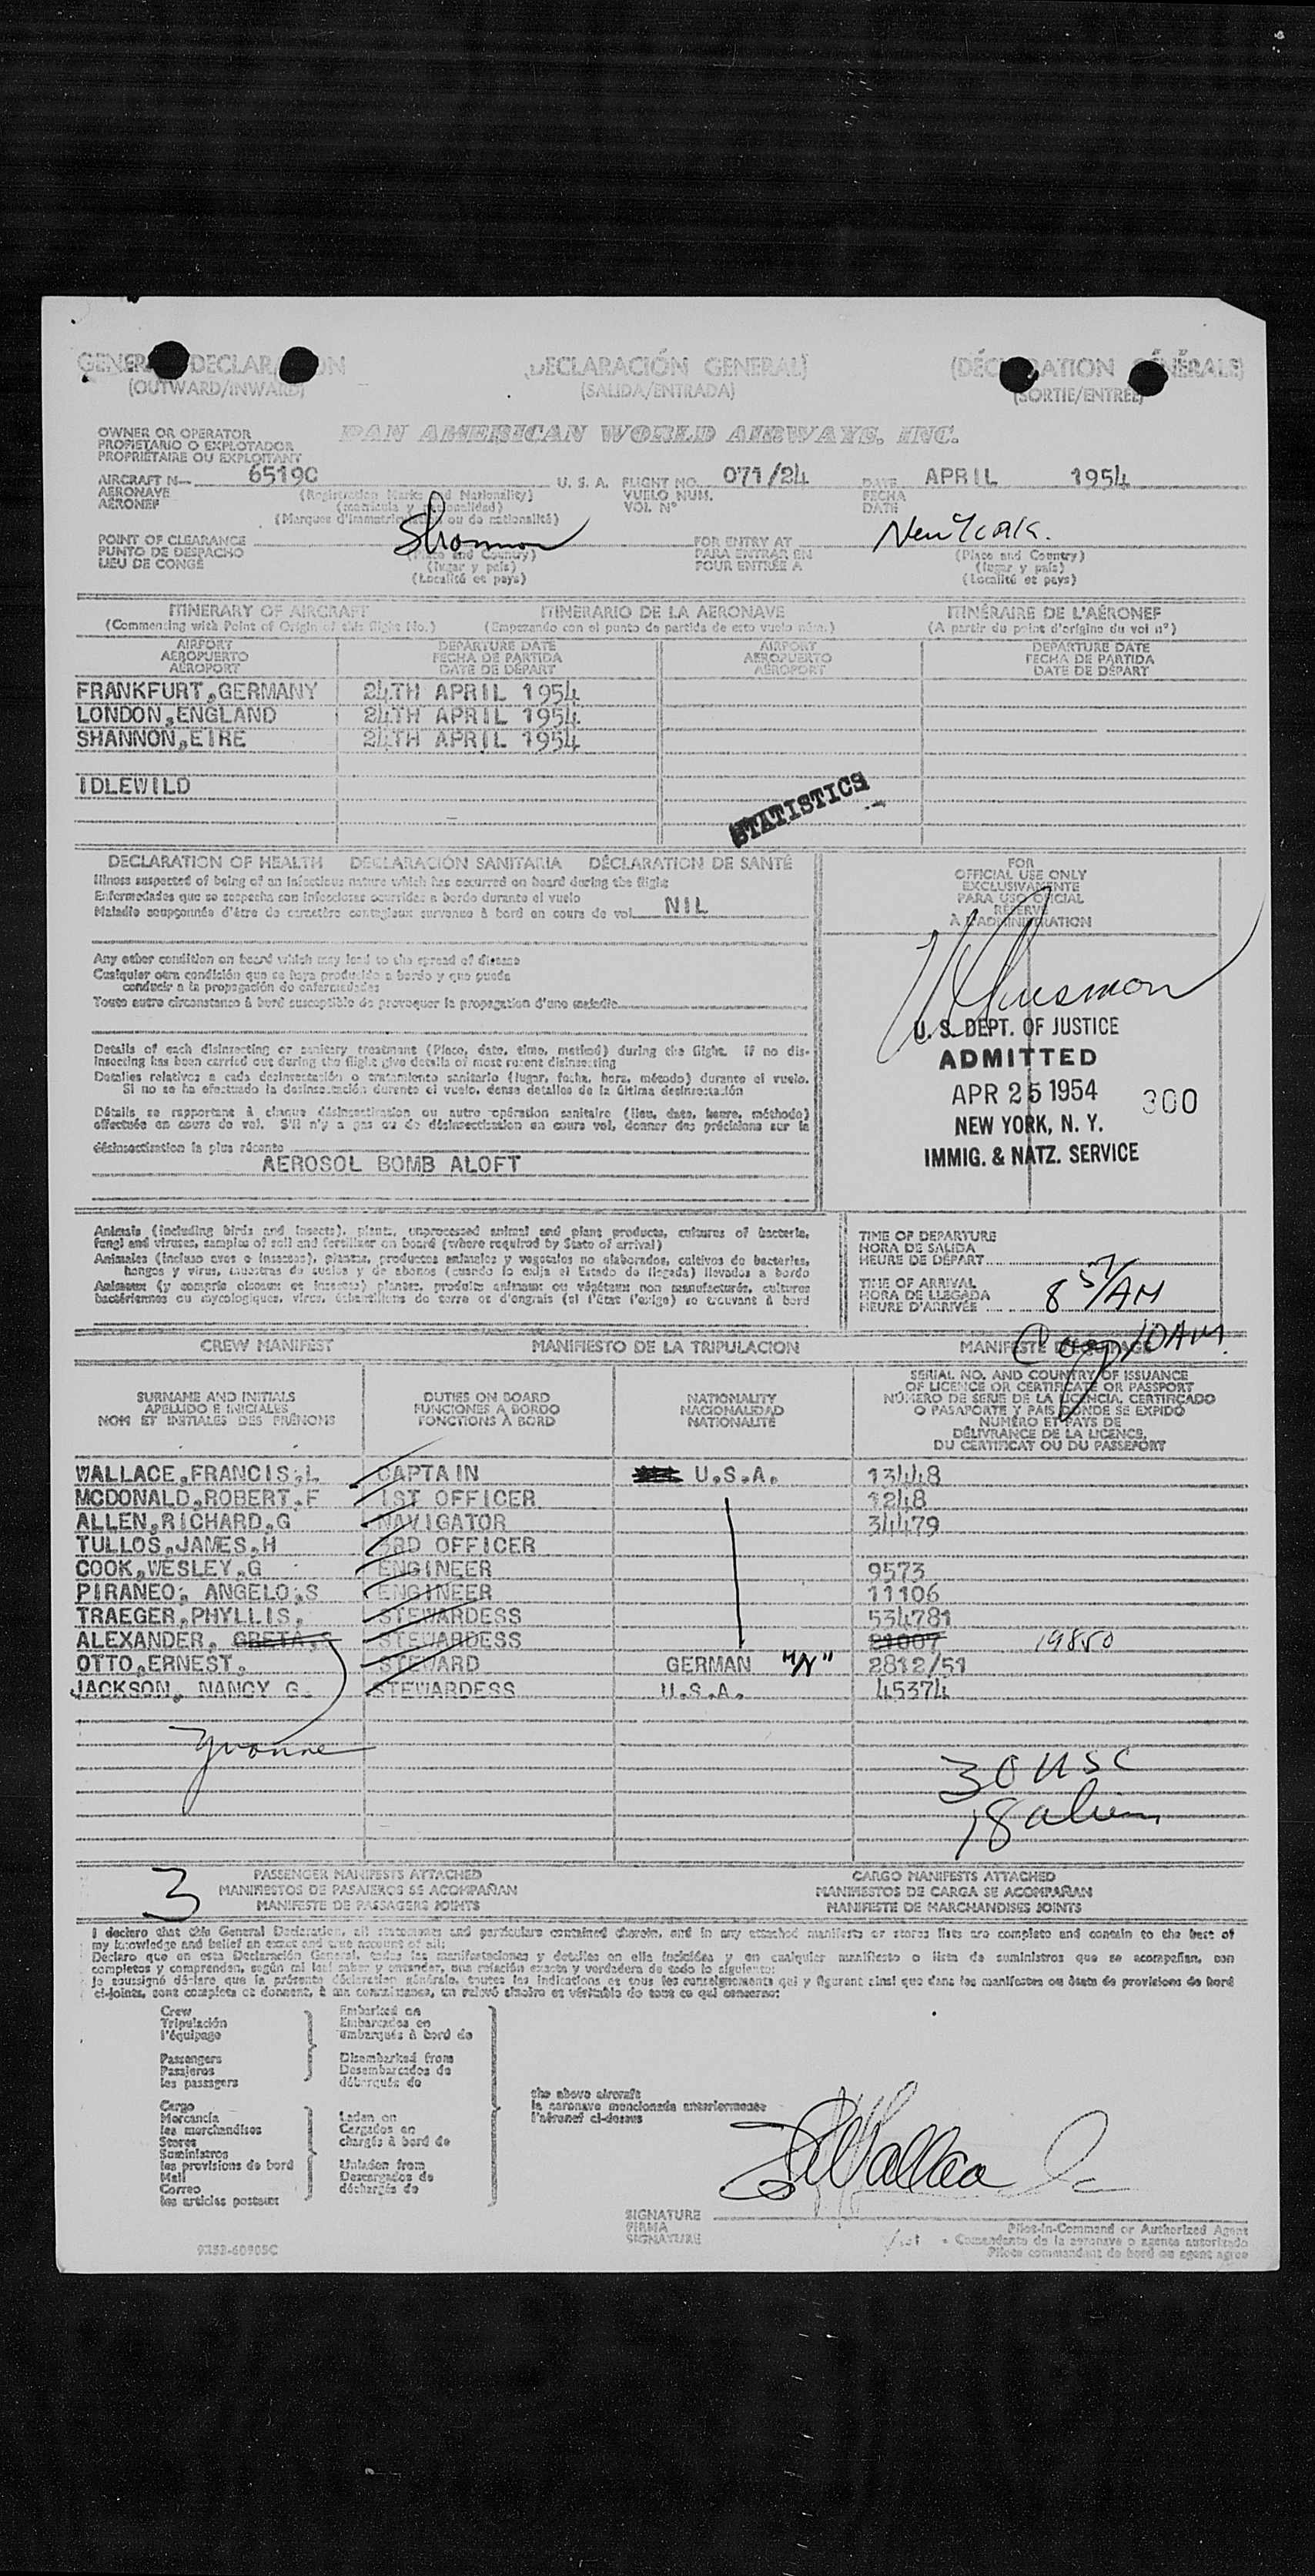 GENERAL DECLARATION
(OUTWARD/INWARD)
DECLARACIÓN GENERAL)
(SALIDA/ENTRADA)
(DÉCLARATION GÉNÉRALE)
(SORTIE/ENTRÉE)
OWNER OR OPERATOR
PROPIETARIO O EXPLOTADOR
PROPRIÉTAIRE OU EXPLOITANT
PAN AMERICAN WORLD AIRWAYS, INC.
AIRCRAFT N— 6519C U. S. A. FLIGHT NO. 071/24 DATE APRIL 1954
AERONAVE (Registration Marks and Nationality) VUELO NUM. FECHA
AÉRONEF (matrícula y nacionalidad) VOL. Nº DATE
(Marques d'immatriculation ou de nationalité)
POINT OF CLEARANCE Shannon FOR ENTRY AT New York.
PUNTO DE DESPACHO (Place and Country) PARA ENTRAR EN (Place and Country)
LIEU DE CONGÉ (lugar y país) POUR ENTRÉE A (lugar y país)
(Localité et pays) (Localité et pays)
ITINERARY OF AIRCRAFT ITINERARIO DE LA AERONAVE ITINÉRAIRE DE L'AÉRONEF
(Commencing with Point of Origin of this flight No.) (Empezando con el punto de partida de esto vuelo núm.) (A partir du point d'origine du vol nº)
AIRPORT DEPARTURE DATE AIRPORT DEPARTURE DATE
AEROPUERTO FECHA DE PARTIDA AEROPUERTO FECHA DE PARTIDA
AÉROPORT DATE DE DÉPART AÉROPORT DATE DE DÉPART
FRANKFURT,GERMANY 24TH APRIL 1954
LONDON,ENGLAND 24TH APRIL 1954
SHANNON,EIRE 24TH APRIL 1954
IDLEWILD
STATISTICS
DECLARATION OF HEALTH DECLARACIÓN SANITARIA DÉCLARATION DE SANTÉ
Illness suspected of being of an infectious nature which has occurred on board during the flight
Enfermedades que se sospecha son infecciosas ocurridas a bordo durante el vuelo
Maladie soupçonnée d'être de caractère contagieux survenue à bord en cours de vol NIL
Any other condition on board which may lead to the spread of disease
Cualquier otra condición que se haya producido a bordo y que pueda
conducir a la propagación de enfermedades
Toute autre circonstance à bord susceptible de provoquer la propagation d'une maladie
Details of each disinsecting or sanitary treatment (Place, date, time, method) during the flight. If no dis-
insecting has been carried out during the flight give details of most recent disinsecting
Detalles relativos a cada desinsectación o tratamiento sanitario (lugar, fecha, hora, método) durante el vuelo.
Si no se ha efectuado la desinsectación durante el vuelo, dense detalles de la última desinsectación
Détails se rapportant à chaque désinsectisation ou autre opération sanitaire (lieu, date, heure, méthode)
effectuée en cours de vol. S'il n'y a pas eu de désinsectisation en cours vol, donner des précisions sur la
désinsectisation la plus récente
AEROSOL BOMB ALOFT
FOR
OFFICIAL USE ONLY
EXCLUSIVAMENTE
PARA USO OFICIAL
RÉSERVÉ
À L'ADMINISTRATION
U. S. DEPT. OF JUSTICE
ADMITTED
APR 25 1954 300
NEW YORK, N. Y.
IMMIG. & NATZ. SERVICE
Animals (including birds and insects), plants, unprocessed animal and plant products, cultures of bacteria,
fungi and viruses, samples of soil and fertilizer on board (where required by State of arrival)
Animales (incluso aves o insectos), plantas, productos animales y vegetales no elaborados, cultivos de bacterias,
hongos y virus, muestras de suelos y de abonos (cuando lo exija el Estado de llegada) llevados a bordo
Animaux (y compris oiseaux et insectes) plantes, produits animaux ou végétaux non manufacturés, cultures
bactériennes ou mycologiques, virus, échantillons de terre et d'engrais (si l'État l'exige) se trouvant à bord
TIME OF DEPARTURE
HORA DE SALIDA
HEURE DE DÉPART
TIME OF ARRIVAL
HORA DE LLEGADA
HEURE D'ARRIVÉE 8 57/AM
10 AM.
CREW MANIFEST MANIFIESTO DE LA TRIPULACION MANIFESTE D'ÉQUIPAGE
SURNAME AND INITIALS
APELLIDO E INICIALES
NOM ET INITIALES DES PRÉNOMS
DUTIES ON BOARD
FUNCIONES A BORDO
FONCTIONS À BORD
NATIONALITY
NACIONALIDAD
NATIONALITÉ
SERIAL NO. AND COUNTRY OF ISSUANCE
OF LICENCE OR CERTIFICATE OR PASSPORT
NÚMERO DE SERIE DE LA LICENCIA, CERTIFICADO
O PASAPORTE Y PAIS DONDE SE EXPIDÓ
NUMÉRO ET PAYS DE
DÉLIVRANCE DE LA LICENCE,
DU CERTIFICAT OU DU PASSEPORT
WALLACE,FRANCIS,L CAPTAIN U.S.A. 13448
MCDONALD,ROBERT,F 1ST OFFICER 1248
ALLEN,RICHARD,G NAVIGATOR 34479
TULLOS,JAMES,H 3RD OFFICER
COOK,WESLEY,G ENGINEER 9573
PIRANEO, ANGELO,S ENGINEER 11106
TRAEGER,PHYLLIS, STEWARDESS 534781
ALEXANDER, GRETA, STEWARDESS 21007 19850
OTTO,ERNEST, STEWARD GERMAN "N" 2812/51
JACKSON, NANCY G. STEWARDESS U.S.A. 45374
Yvonne
30 USC
18 alien
3
PASSENGER MANIFESTS ATTACHED
MANIFIESTOS DE PASAJEROS SE ACOMPAÑAN
MANIFESTE DE PASSAGERS JOINTS
CARGO MANIFESTS ATTACHED
MANIFIESTOS DE CARGA SE ACOMPAÑAN
MANIFESTE DE MARCHANDISES JOINTS
I declare that this General Declaration, all statements and particulars contained therein, and in any attached manifests or stores lists are complete and contain to the best of
my knowledge and belief an exact and true account of all:
Declaro que en esta Declaración General, todas las manifestaciones y detalles en ella incluidos y en cualquier manifiesto o lista de suministros que se acompañan, son
completos y comprenden, según mi leal saber y entender, una relación exacta y verdadera de todo lo siguiente:
Je soussigné déclare que la présente déclaration générale, toutes les indications et tous les renseignements qui y figurent ainsi que dans les manifestes ou états de provisions de bord
ci-joints, sont complets et donnent, à ma connaissance, un relevé sincère et véritable de tous ce qui concerne:
Crew
Tripulación
l'équipage
Passengers
Pasajeros
les passagers
Embarked on
Embarcados en
embarqués à bord de
Disembarked from
Desembarcados de
débarqués de
Cargo
Mercancía
les marchandises
Stores
Suministros
les provisions de bord
Mail
Correo
les articles postaux
Laden on
Cargados en
chargés à bord de
Unladen from
Descargados de
déchargés de
the above aircraft
la aeronave mencionada anteriormente
l'aéronef ci-dessus
SIGNATURE
FIRMA
SIGNATURE
Pilot-in-Command or Authorized Agent
Comandante de la aeronave o agente autorizado
Pilote commandant de bord ou agent agree